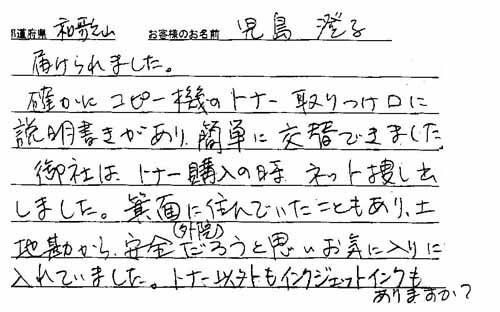 都道府県 和歌山 お客様のお名前 児島 澄子
届けられました。
確かにコピー機のトナー取りつけ口に
説明書きがあり、簡単に交替できました
御社は、トナー購入の時、ネット捜し出
しました。箕面に住んでいたこともあり、土
(外院)
地勘から、安全だろうと思いお気に入りに
入れていました。トナー以外もインクジェットインクも
ありますか?